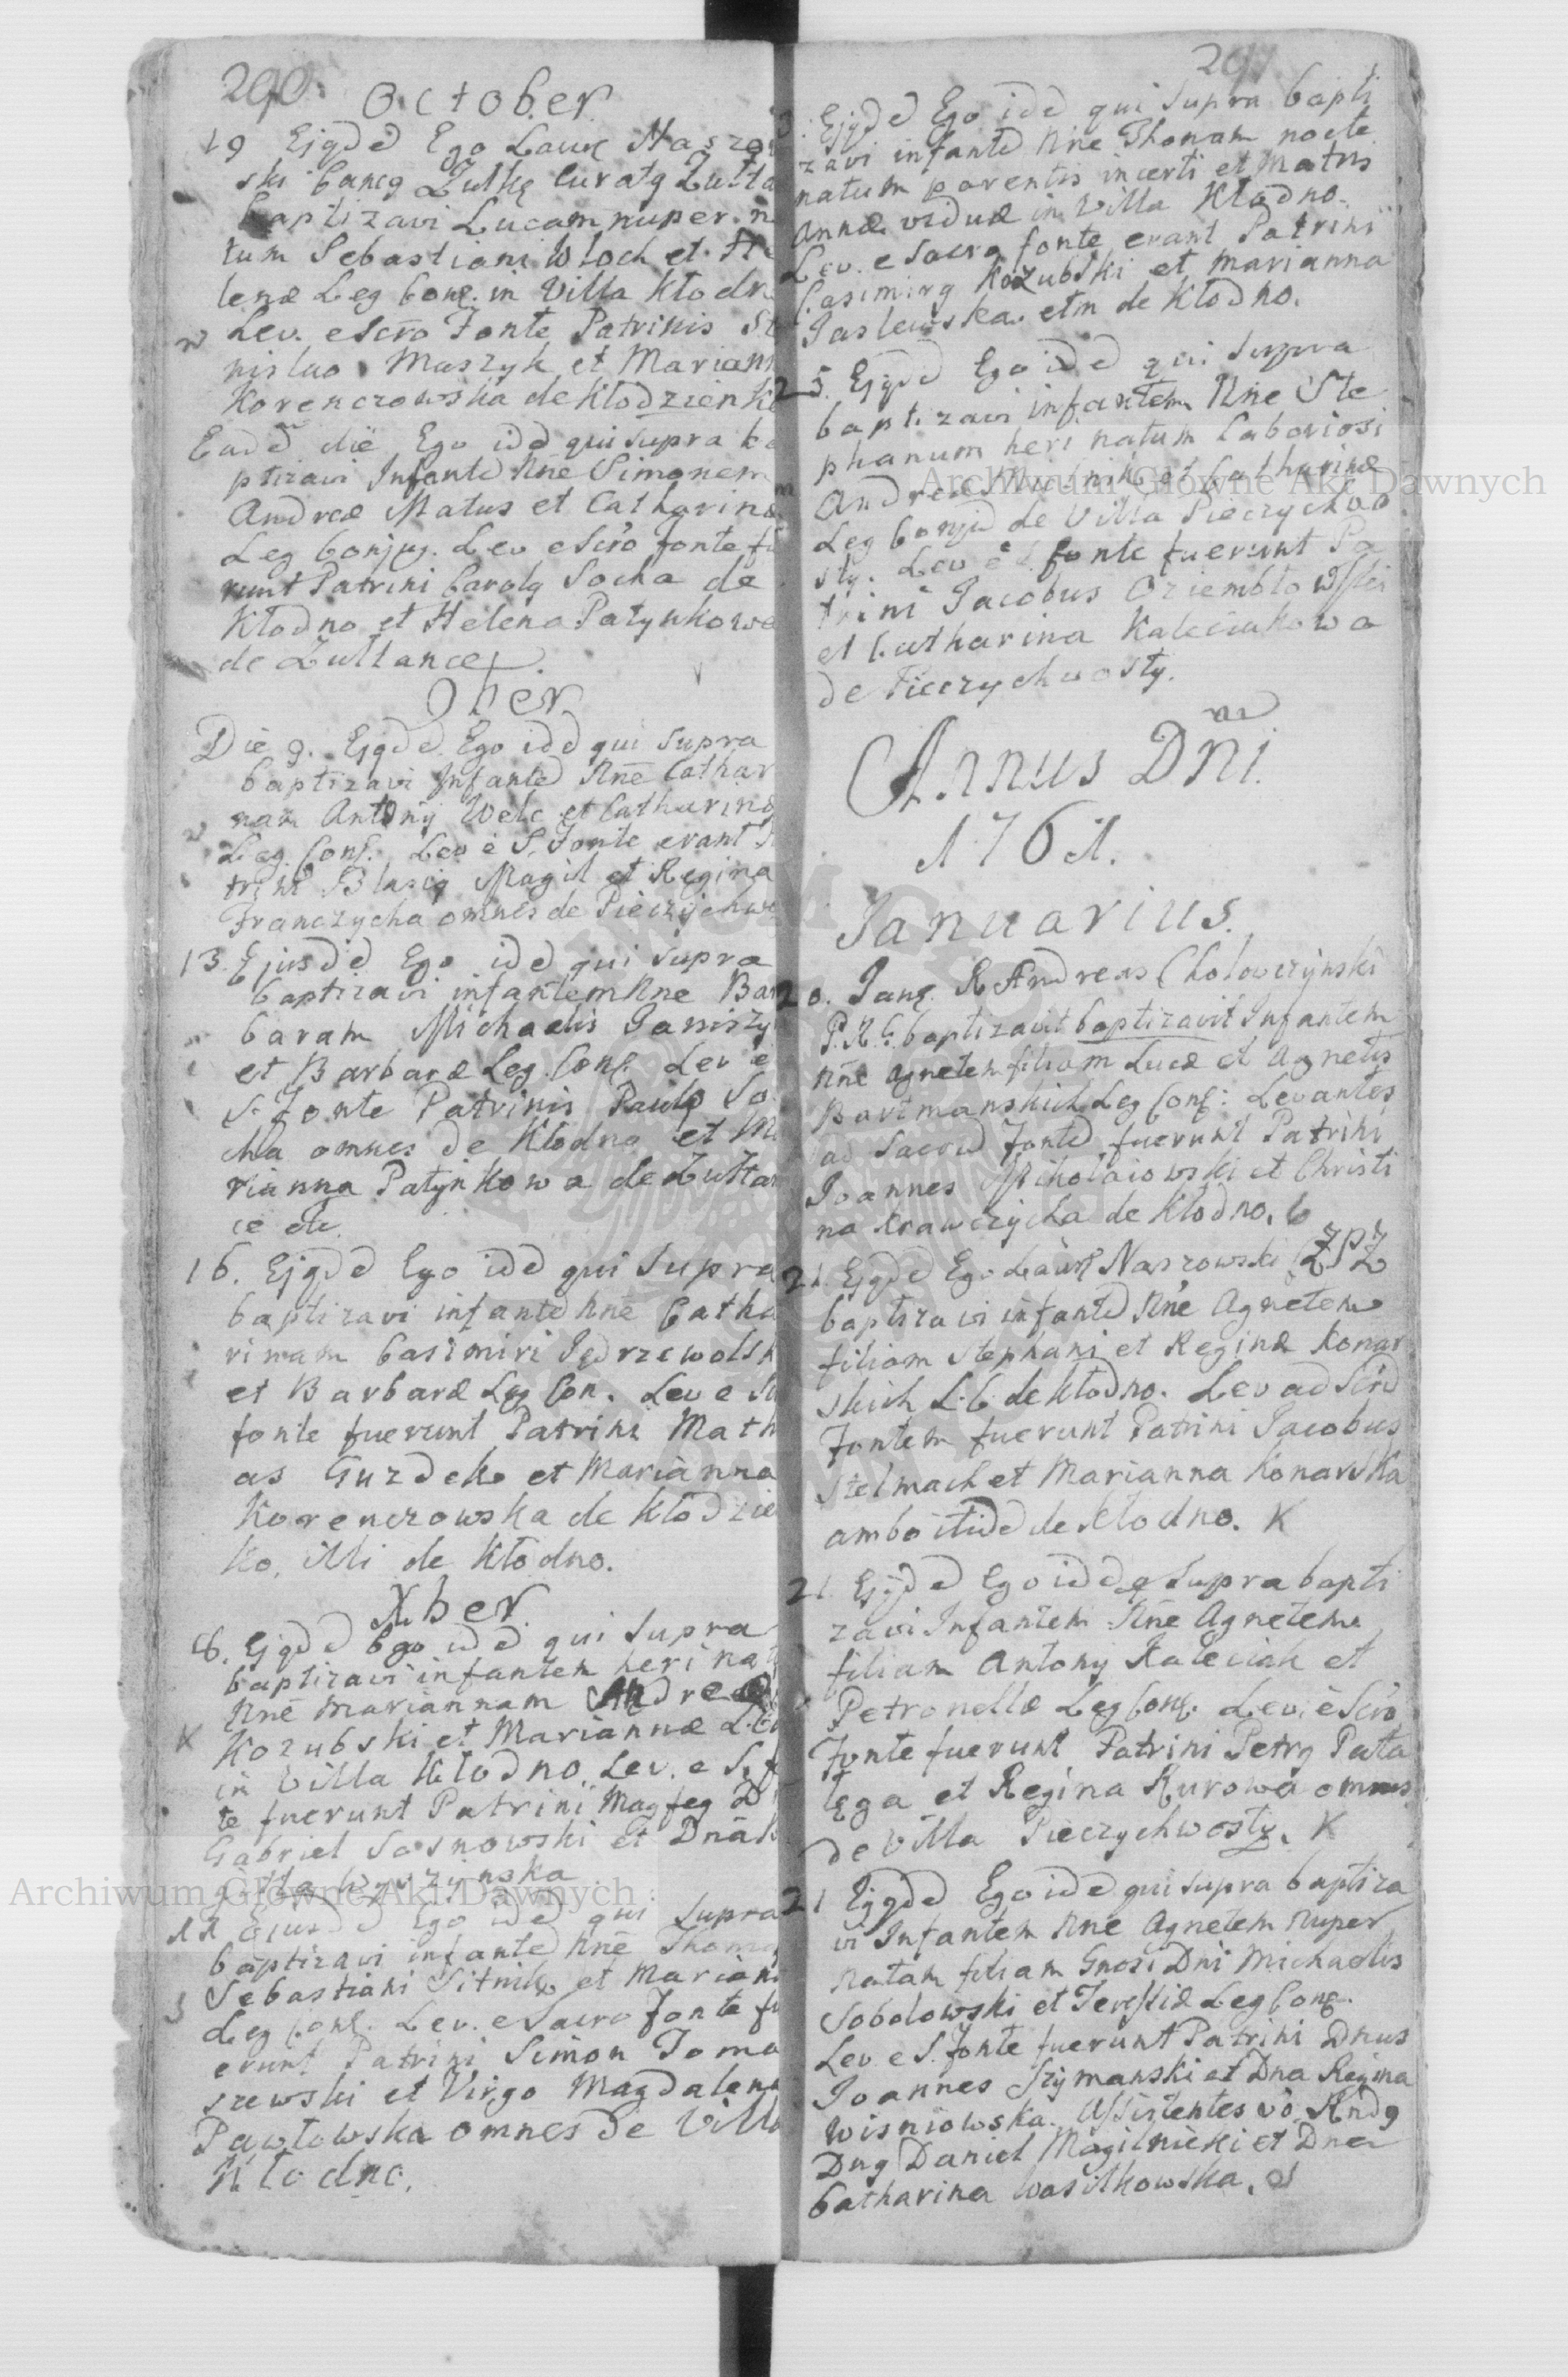 290.
October
19 Ejqdd Ego Laur Naszo
ski Cancq Zulkę Curatq Zułta
baptizavi Lucam nuper n
tum Sebastiani Wloch et He
lenæ Leg Conę. in Villa Kłodn
Lev. e Scro Fonte Patrinis St
nislao Maszyk et Mariann
Korenczowska de Kłodzienk
Eadd die Ego idd qui supra ba
ptizavi Infantd Nne Simonem
Andreæ Matus et Catharinæ
Leg Conjug. Lev e Scro fonte fu
runt Patrini Carolq Socha de
Kłodno et Helena Patynkowa
de Zułtance
9ber
Die 9. Ejqdd Ego idd qui supra
baptizavi Infantd Nne Cathar
nam Antonij Welc et Catharinæ
Leg. Conę. Lev e S. Fonte erant
trini Blasiq Magil et Regina
Franczycha omnes de Pieczychwo
13. Ejusdd Ego idd qui supra
baptizavi infantem Nne Bar
baram Michaelis Janiszy
et Barbaræ Leg. Conę. Lev e
S. Fonte Patrinis Paulo So
cha omnes de Kłodno et M
rianna Patynkowa de Zułtan
ce etc.
16. Ejqdd Ego idd qui supra
baptizavi infantd Nne Catha
rinam Casimiri Jędrzewolsk
et Barbaræ Leg Con. Lev e S
fonte fuerunt Patrini Math
as Guzdek et Marianna
Korenczowska de Kłodzie
ko, illi de Kłodno.
Xber
8. Ejqdd Ego idd qui supra
baptizavi infantem heri na
Nne Mariannam Andreæ
Kozubski et Mariannæ L.
in Villa Kłodno. Lev. e S. f
te fuerunt Patrini Magfeg D
Gabriel Sosnowski et Dna
gitta Wyszynska
11 Ejusdd Ego idd qui supra
baptizavi infantd Nne Thoma
Sebastiani Sitnik et Mariann
Leg Conę. Lev. e Sacro Fonte fu
erunt Patrini Simon Toma
szewski et Virgo Magdalena
Pawłowska omnes de Villa
Kłodno.
291
Ejqdd Ego idd qui supra bapti
zavi infantd Nne Thomam nocte
natum parentis incerti et Matris
Annæ viduæ in Villa Kłodno.
Lev. e Sacro fonte erant Patrini
Casimirq Kozubski et Marianna
Jaslewska etm de Kłodno.
25. Ejqdd Ego idd qui supra
baptizavi infantem Nne Ste
phanum heri natum Laboriosi
Andreæ et Catharinæ
Leg Conju de Villa Pieczychwo
sty. Lev e S. fonte fuerunt Pa
trini Jacobus Oziembłowski
et Catharina Kaleciakowa
de Pieczychwosty.
Annus Dni
1761.
Januarius.
20. Janę. R Andreas Chołowczynski
P.K.G. baptizavit baptizavit Infantem
Nne Agnetem filiam Lucæ et Agnetis
Bartmanskich Leg Conę: Levantes
ad Sacrd Fontd fuerunt Patrini
Joannes Mikolaiowski et Christi
na Krawczycha de Kłodno.
21. Ejqdd Ego Laurę Naszowski ZPZ
baptizavi infantd Nne Agnetem
filiam Stephani et Reginæ Konar
skich L. C. de Kłodno. Lev ad Scrd
Fontem fuerunt Patrini Jacobus
Stelmach et Marianna Konarska
ambo itidd de Kłodno. K
21. Ejqdd Ego idd q supra bapti
zavi Infantem Nne Agnetem
filiam Antony Kaleciak et
Petronellæ Leg Conę. Lev. e Scro
Fonte fuerunt Patrini Petrq Pała
tega et Regina Kurowa omnes
de Villa Pieczychwosty. K
21 Ejqdd Ego idd qui supra baptiza
vi Infantem Nne Agnetem nuper
natam filiam Gnosi Dni Michaelis
Sobolowski et Teressiæ Leg Conę.
Lev e S. fonte fuerunt Patrini Dnus
Joannes Szymanski et Dna Regina
Wisniowska. Assistentes vo. Rndq
Dnq Daniel Magilnicki et Dna
Catharina Wasilkowska.
Archiwum Główne Akt Dawnych
Archiwum Główne Akt Dawnych